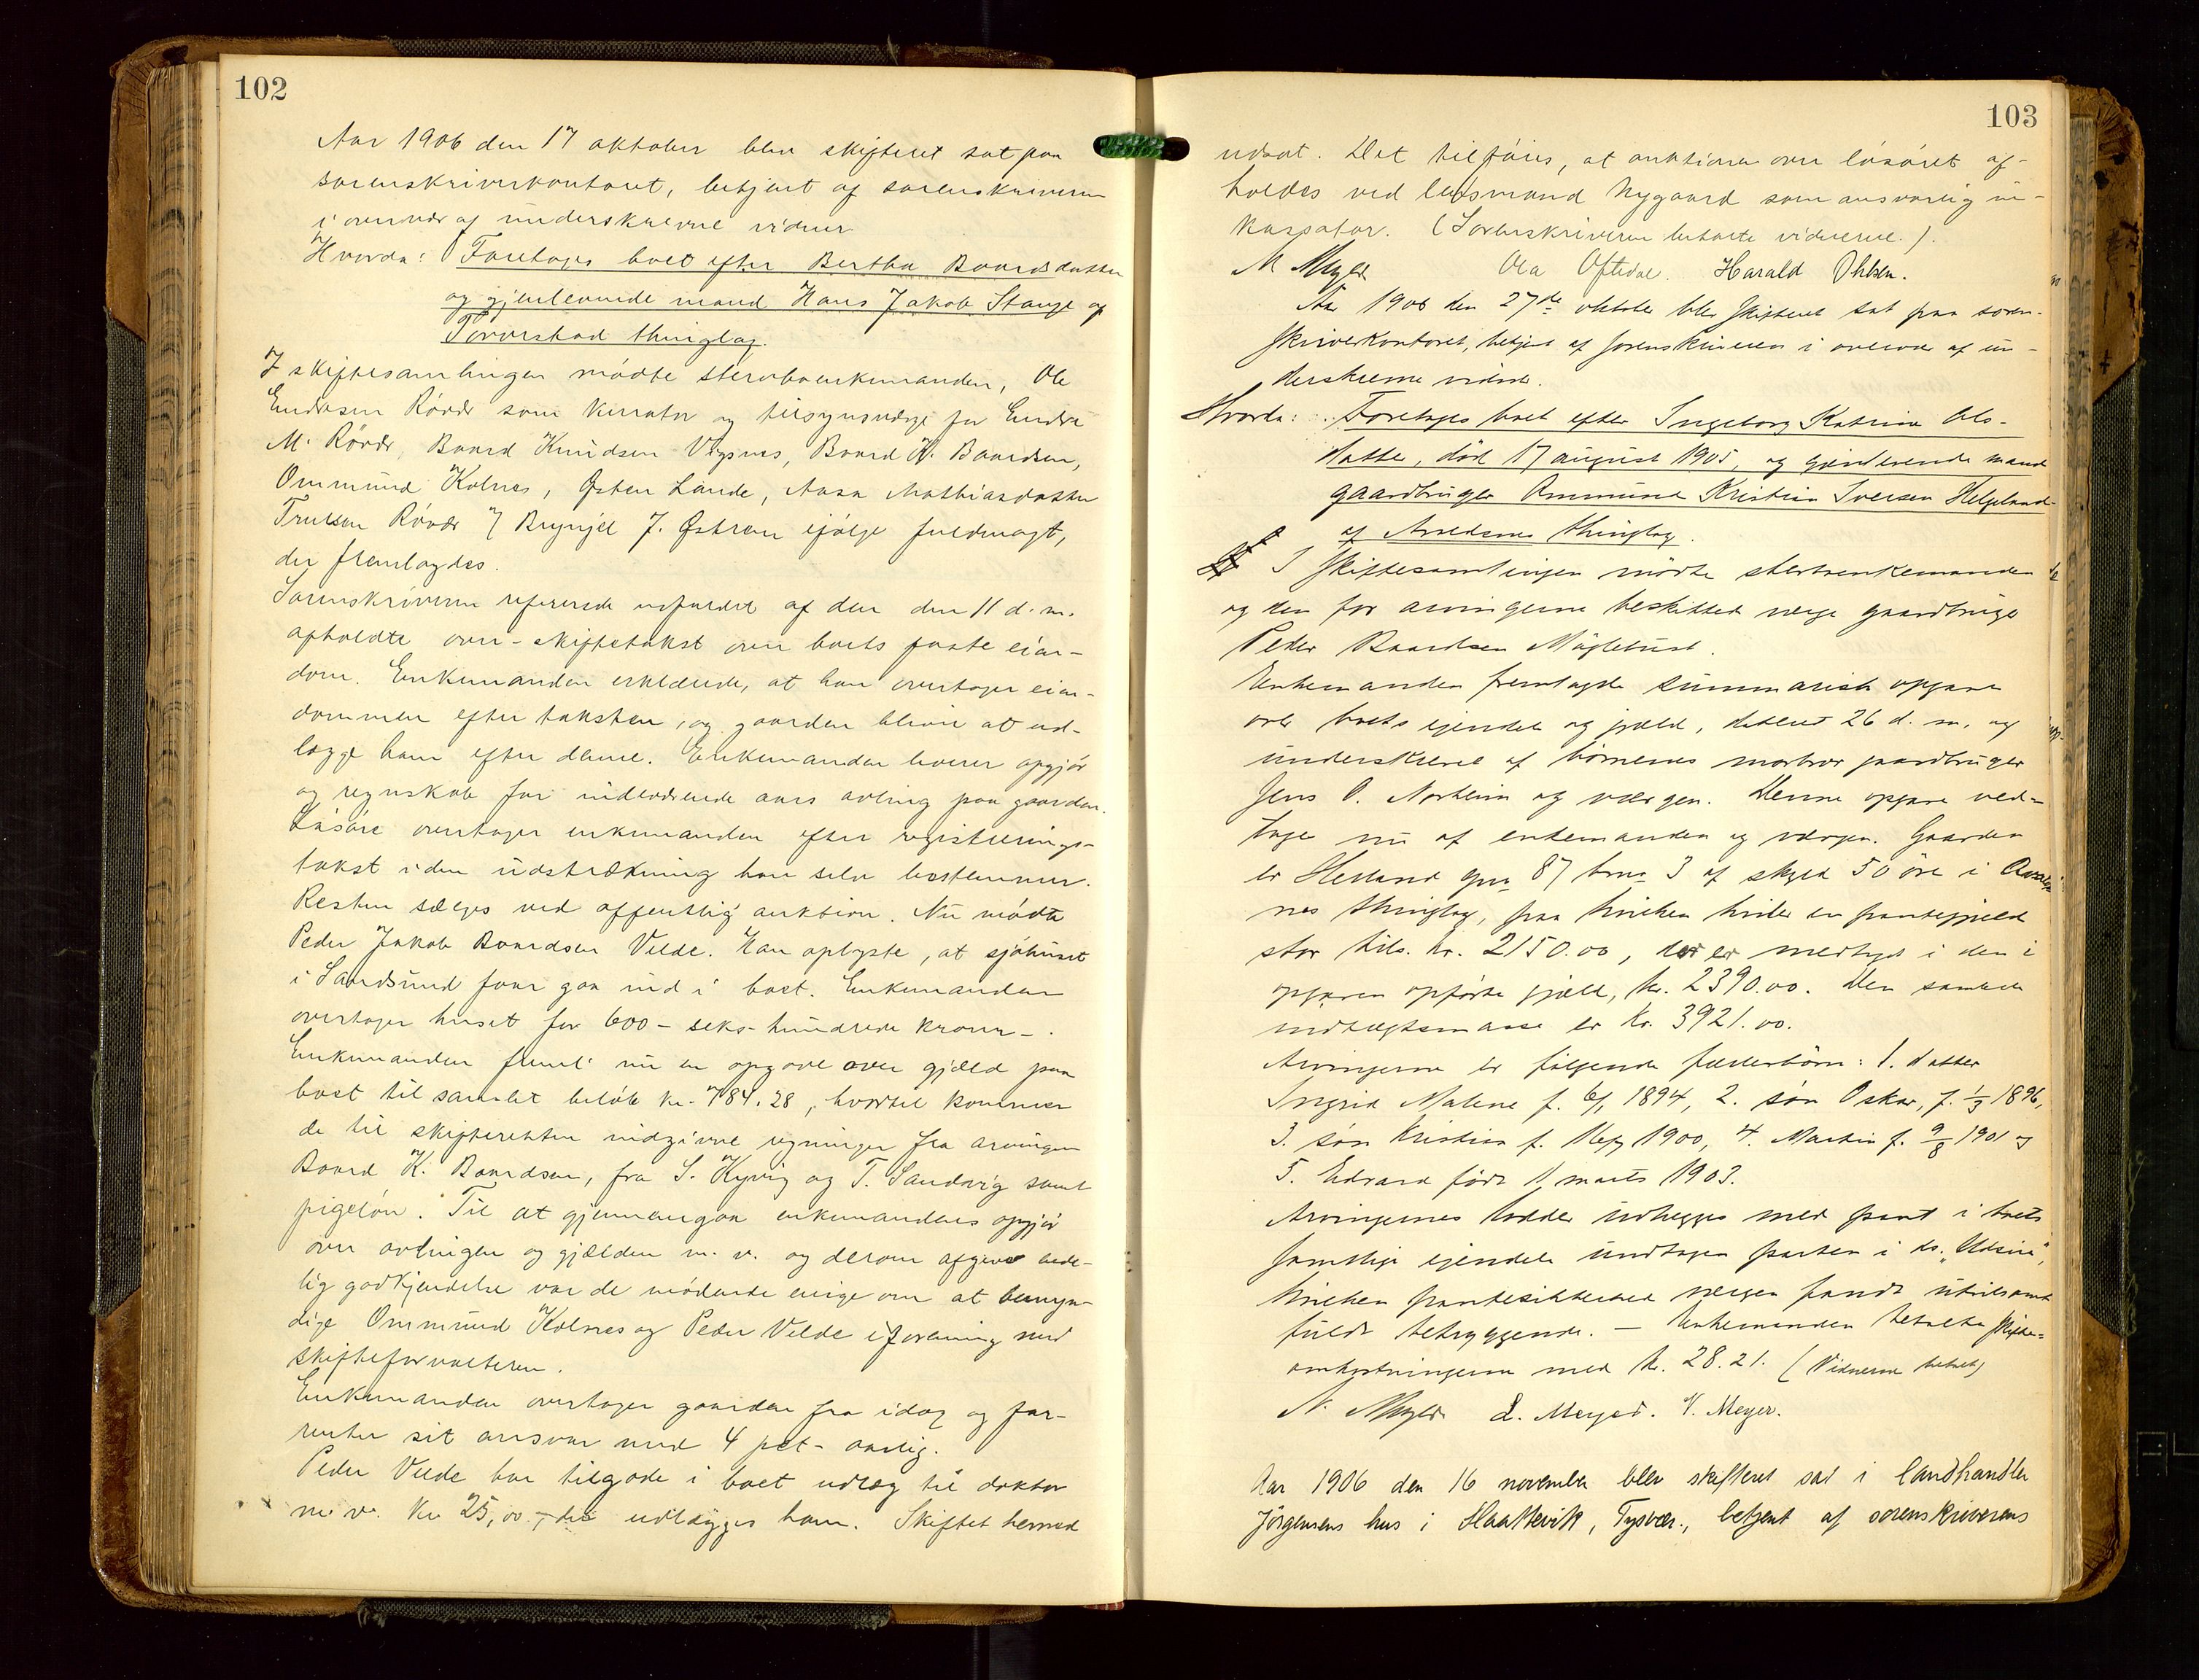 102
Aar 1906 den 17 oktober blev skifteret sat paa
sorenskriverkontoret, betjent af sorenskriveren
i overvær af underskrevne vidner
Hvorda: Foretages boet efter Bertha Baardsdatter
og gjenlevende mand Hans Jakob Stange af
Torvestad thinglag.
I skiftesamlingen mødte stervboenkemanden, Ole
Endresen Røvær som kurator og tilsynsværge for Endre
M. Røvær, Baard Knudsen Vigsnes, Baard K. Baardsen,
Ommund Kolnes, Østen Lande, Aasa Mathiasdatter
Trulsen Røvær v/ Brynjel J. Østrem ifølge fuldmagt,
der fremlagdes.
Sorenskriveren refererede udfaldet af den den 11 d. m.
afholdte over-skiftetakst over boets faste eien-
dom. Enkemanden erklærede, at han overtager eien-
dommen efter taksten, og gaarden bliver at ud-
lægge ham efter denne. Enkemanden leverer opgjør
og regnskab for indeværende aars avling paa gaarden.
Løsøre overtager enkemanden efter registrerings-
takst i den udstrækning han selv bestemmer.
Resten sælges ved offentlig auktion. Nu mødte
Peder Jakob Baardsen Velde. Han oplyste, at sjøhuset
i Sandsund faar gaa ind i boet. Enkemanden
overtager huset for 600 - seks-hundrede kroner -.
Enkemanden freml. nu en opgave over gjæld paa
boet til samlet beløb kr. 784.28, hvortil kommer
de til skifteretten indgivne regninger fra arvingen
Baard K. Baardsen, fra S. Kyvig og T. Sandvig samt
pigeløn. Til at gjennemgaa enkemandens opgjør
over avlingen og gjælden m. v. og derom afgive ende-
lig godkjendelse var de mødende enige om at bemyn-
dige Ommund Kolnes og Peder Velde i forening med
skifteforvalteren.
Enkemanden overtager gaarden fra idag og for-
renter sit ansvar med 4 pct. aarlig.
Peder Velde har tilgode i boet udlæg til doktor
m. v. kr 25,00, der udlægges ham. Skiftet hermed
103
udsat. Det tilføies, at auktionen over løsøret af-
holdes ved lensmand Nygaard som ansvarlig in-
kassator. (Sorenskriveren betalte vidnerne.).
Ola Oftedal. Harald Ohlsen.
Aar 1906 den 27de oktober blev skifteret sat paa soren-
skriverkontoret, betjent af sorenskriveren i overvær af un-
derskrevne vidner.
Hvorda: Foretages boet efter Ingeborg Katrine Ols-
datter, død 17 august 1905, og gjenlevende mand
gaardbruger Ommund Kristian Iversen Helgeland
af Avaldsnes thinglag.
I skiftesamlingen mødte stervboenkemanden
og den for arvingerne beskikkede værge gaardbruger
Peder Baardsen Møgletust.
Enkemanden fremlagde summarisk opgave
over boets eiendele og gjæld, dateret 26 d. m. og
underskrevet af børnenes morbror gaardbruger
Jens O. Norheim og værgen. Denne opgave ved-
toges nu af enkemanden og værgen. Gaarden
er Hesland gno 87 brno 3 af skyld 50 øre i Avalds-
nes thinglag, paa hvilken hviler en pantegjæld
stor tils. kr. 2150.00, der er medtaget i den i
opgaven opførte gjæld, kr. 2390.00. Den samlede
indtægtsmasse er kr. 3921.00.
Arvingerne er følgende fællesbørn: 1. datter
Ingrid Malene f. 6/1 1894, 2. søn Oskar, f. 1/3 1896,
3. søn Kristian f. 1900, 4. Martin f. 9/8 1901 og
5. Edvard født 1 marts 1903.
Arvingernes lodder udlægges med pant i boets
samtlige eiendele undtagen parten i ds. "Udsire",
hvilken pantesikkerhed værgen fandt utvilsomt
fuldt betryggende. – Enkemanden betalte skifte-
omkostningerne med kr. 28.21. (Vidnerne betalt)
L. Meyer. V. Meyer.
Aar 1906 den 16 november blev skifteret sat i landhandler
Jørgensens hus i Haattevik, Tysvær, betjent af sorenskriverens